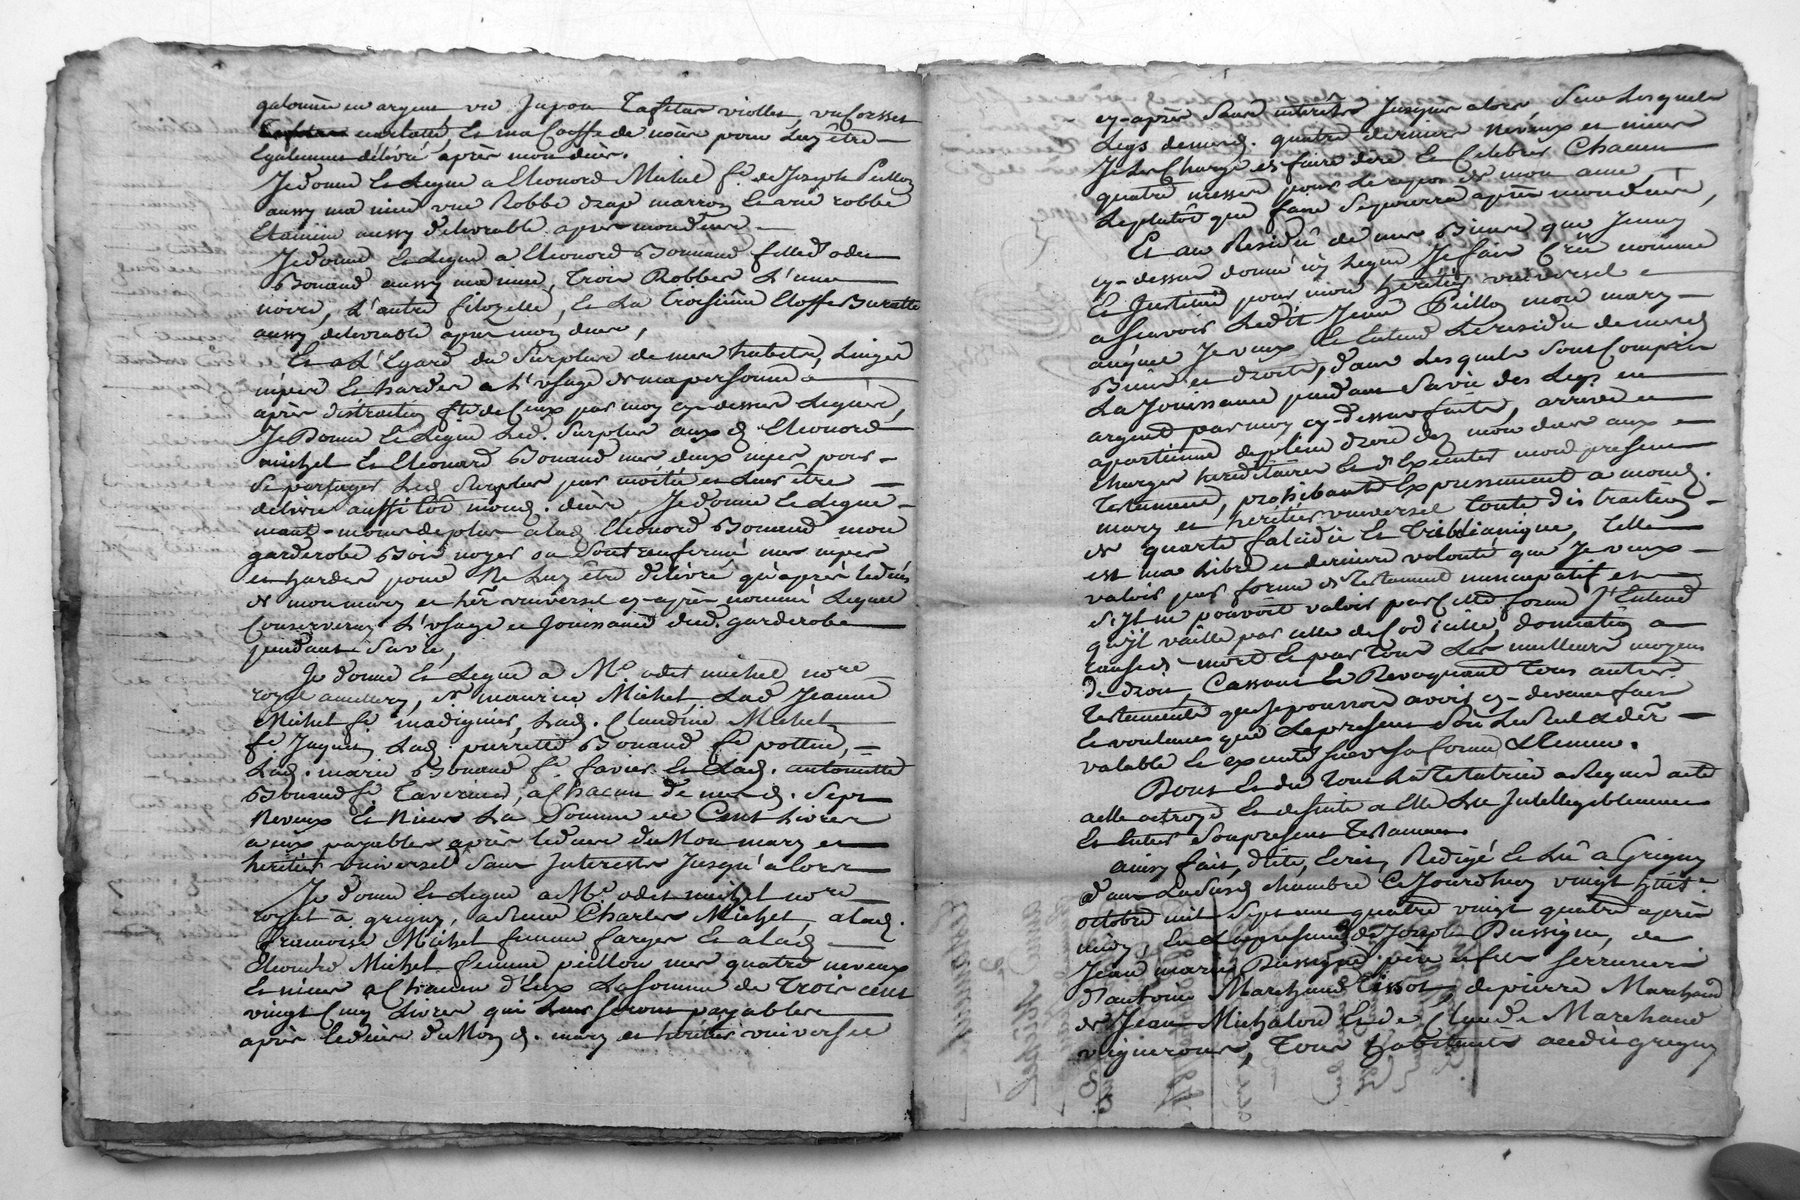 galonnée en argent un Jupon Taffetas viollet, un Corsset
ecarlatte, et ma Coeffe de noire pour luy être
Egalement délivré après mon décès.
Je donne et legue a Eleonord Michel f.e de Joseph Peillon
aussy ma niece une Robbe drap marron et une robbe
Etamine aussy delivrable apres mon deces
Je donne et Legue a Eleonord Bonnand fille d'odet
Bonand aussy ma niece, trois Robbes L'une
noire, L'autre filozelle, et La troisième Etoffe Buratte
aussy delivrable après mon deces,
Et a L'Egard du Surplus de mes habits, Linges
nipes et hardes a L'usage de ma personne
après distraction f.te de Ceux par moy cy dessus Legués,
Je Donne et Legue Led. Surplus aux d. Eleonord
michel et Eleonord Bonand mes deux nieces pour
Se partager Led Surplus par moitié et Leur être
délivré aussitôt mond. décès, Je donne et Legue
de plus a lad. Eleonord Bonand mon
garderobe Bois noyer ou Sont renfermé mes nipes
et hardes pour Ne Luy être délivré qu'après le deces
de mon mary et her. universel cy-après nommé Lequel
Conservera L'usage et Jouissance dud. garderobe
pendant Sa vie,
Je donne et Legue a M.e odet michel no.re
royal, S.r maurice Michel, Lad Jeanne
Michel f.e madignier, Lad. Claudine Michel
f.e, Lad. pierrette Bonand f.e pottin,
Lad. marie Bonand f.e favier et Lad. antoinette
Bonand f.e Tavernier, a Chacun de mesd. Sept
Neveux et Nieces La Somme de Cent Livres
a eux payables après le deces du Mon mary et
heritier universel Sans Interests Jusqu'a lors
Je donne et Legue a M.e odet michel no.re
royal a grigny, a Sieur Charles Michel, a lad.
francoise Michel femme farges et a lad
Eleonore Michel femme peillon mes quatre neveux
et nieces a Chacun d'Eux La Somme de Trois cent
vingt Cinq Livres qui Leur Seront payables
après le déces du Mon d. mary et héritier universel
cy-après Sans interests Jusques alors Sous Lesquels
Legs de mesd. quatre derniers Neveux et nieces
Je Les Charge de faire dire et Celebrer Chacun
quatre messes pour Le repos de mon ame
Le plutôt que faire Se pourra après mon décès,
Et au Residû de mes Biens que Je n'ay
cy-dessus donné ny Legué Je fais Crée nomme
et Institue pour mon heritier universel
a Scavoir Led.t Jean Peillon mon mary
auquel Je veux et Entend Le residu de mesd
Biens et droits, dans Lesquels Sont Compris
La Jouissance pendant Sa vie des Legs en
argent par moy cy-dessus faits, arrive et
apartienne de plein droit dez mon deces aux
charges hereditaires et d'Executer mon present
Testament, prohibant Expressement a mond.
mary et heritier universel toute distraction
de quarte falcidie et Trebellianique, Telle
est ma Libre et derniere volonté que Je veux
valoir par forme de Testament nuncupatif et
S'Il ne pouvoit valoir par Cette forme J'Entend
qu'Il vaille par celle de Codicille, donnation a
cause de mort et par Tous Les meilleurs moyens
de droit, Cassant et Revoquant Tous autres
Testaments que Je pourrois avoir cy-devant fait
et voulant que Le present Soit Le Seul & der.
valable et executé Suivant Sa forme & teneur.
Dont et du Tout La Testatrice a Requis acte
a elle octroyé et de Suite a Elle Lu Intelligiblement
et Entier Son present Testament.
ainsy fait, dité, Ecrit, Redigé et Lû a Grigny
dans La Susd chambre Ce Jourdhuy vingt huit
octobre mil Sept cent quatre vingt quatre après
midy, En La presence de Joseph Bussigny, de
Jean marie Bussigny père et fils Serruriers
d'antoine Marchand Tissot, de pierre Marchand
de Jean Michalon et de Claude Marchand
vignerons, Tous habitants audit grigny